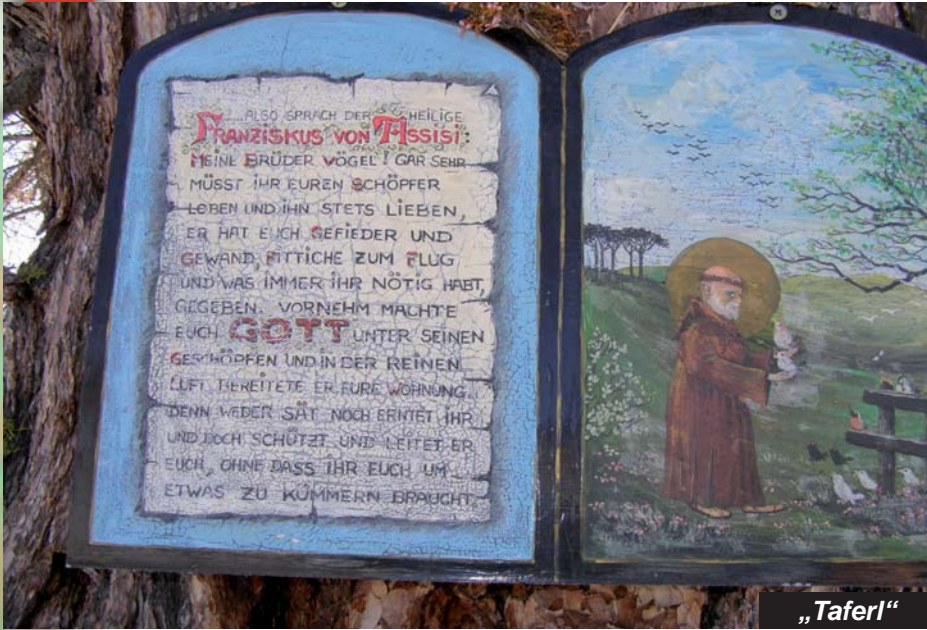 ALSO SPRACH DER HEILIGE
FRANZISKUS VON ASSISI:
MEINE BRÜDER VÖGEL! GAR SEHR
MÜSST IHR EUREN SCHÖPFER
LOBEN UND IHN STETS LIEBEN,
ER HAT EUCH GEFIEDER UND
GEWAND, FITTICHE ZUM FLUG
UND WAS IMMER IHR NÖTIG HABT,
GEGEBEN. VORNEHM MACHTE
EUCH GOTT UNTER SEINEN
GESCHÖPFEN UND IN DER REINEN
LUFT BEREITETE ER EURE WOHNUNG.
DENN WEDER SÄT NOCH ERNTET IHR
UND DOCH SCHÜTZT UND LEITET ER
EUCH, OHNE DASS IHR EUCH UM
ETWAS ZU KÜMMERN BRAUCHT.
„Taferl“